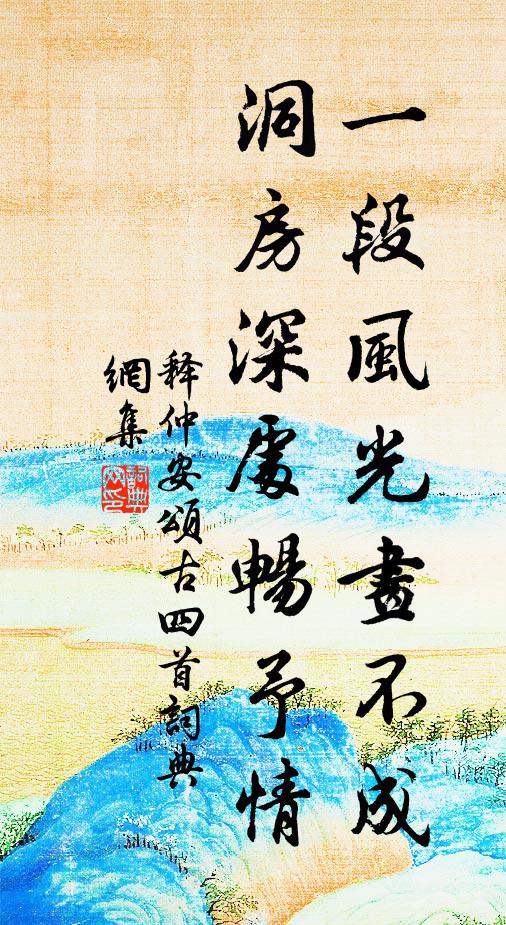 一段風光畫不成
洞房深處暢予情
释仲安頌古四首詞典
網集